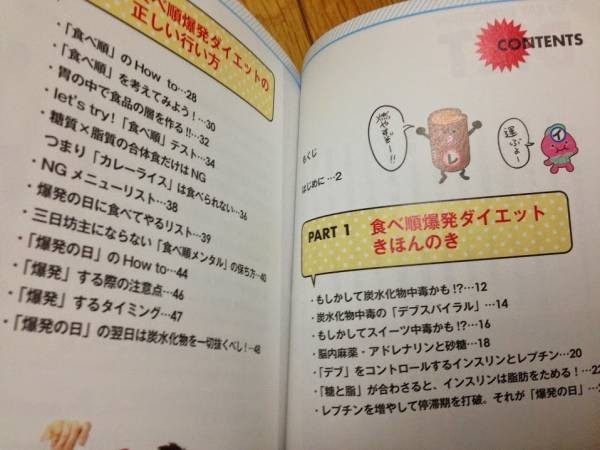 食べ順爆発ダイエットの
正しい行い方
・「食べ順」のHow to…28
・「食べ順」を考えてみよう!…30
・胃の中で食品の層を作る!!…32
・let's try!「食べ順」テスト…34
・糖質×脂質の合体食だけはNG
つまり「カレーライス」は食べられない…36
・NGメニューリスト…38
・爆発の日に食べてやるリスト…39
・三日坊主にならない「食べ順メンタル」の保ち方…40
・「爆発の日」のHow to…44
・「爆発」する際の注意点…46
・「爆発」するタイミング…47
・「爆発の日」の翌日は炭水化物を一切抜くべし!…48
CONTENTS
燃やすぞー!!
運ぶよー
レ
イ
もくじ
はじめに…2
PART 1 食べ順爆発ダイエット
きほんのき
・もしかして炭水化物中毒かも!?…12
・炭水化物中毒の「デブスパイラル」…14
・もしかしてスイーツ中毒かも!?…16
・脳内麻薬・アドレナリンと砂糖…18
・「デブ」をコントロールするインスリンとレプチン…20
・「糖と脂」が合わさると、インスリンは脂肪をためる!…22
・レプチンを増やして停滞期を打破。それが「爆発の日」…